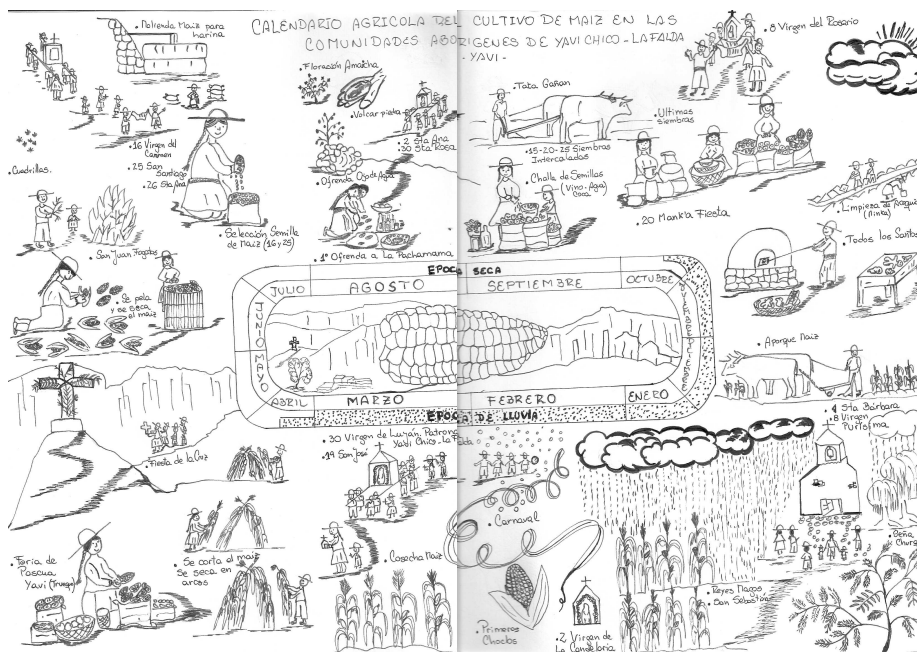 CALENDARIO AGRICOLA DEL CULTIVO DE MAIZ EN LAS
COMUNIDADES ABORIGENES DE YAVI CHICO - LA FALDA
- YAVI -
• Molienda Maiz para
harina
• 16 Virgen del
Carmen
• 25 San
Santiago
• 26 Sta Ana
• Cuadrillas.
• Selección Semilla
de Maiz (16 y 25)
• San Juan Fogatas
• Se pela
y se seca
el maiz
• Floración Amaicha
• Volcar piedra
• 2 Sta Ana
30 Sta Rosa
• Ofrenda Ojo de Agua
• 1° Ofrenda a La Pachamama
• Tata Gañan
• 15-20-25 Siembras
Intercaladas
• Challa de Semillas
(Vino-Agua)
Coca
• 8 Virgen del Rosario
• Ultimas
siembras
• 20 Mank'a Fiesta
• Limpieza de
(Minka)
• Todos los Santos
EPOCA SECA
JULIO
AGOSTO
SEPTIEMBRE
OCTUBRE
JUNIO
MAYO
NOVIEMBRE
DICIEMBRE
ABRIL
MARZO
FEBRERO
ENERO
EPOCA DE LLUVIA
• Aporque Maiz
• 4 Sta Bárbara
• 8 Virgen
Purísima
• Fiesta de la Cruz
• 30 Virgen de Luján, Patrona
Yavi Chico - La Falda
• 19 San José
• Carnaval
• Feria de
Pascua
Yavi (Trueque)
• Se corta el maiz
Se seca en
arcos
• Cosecha Maiz
• Primeros
Choclos
• 2 Virgen de
La Candelaria
• Reyes Magos
• San Sebastian